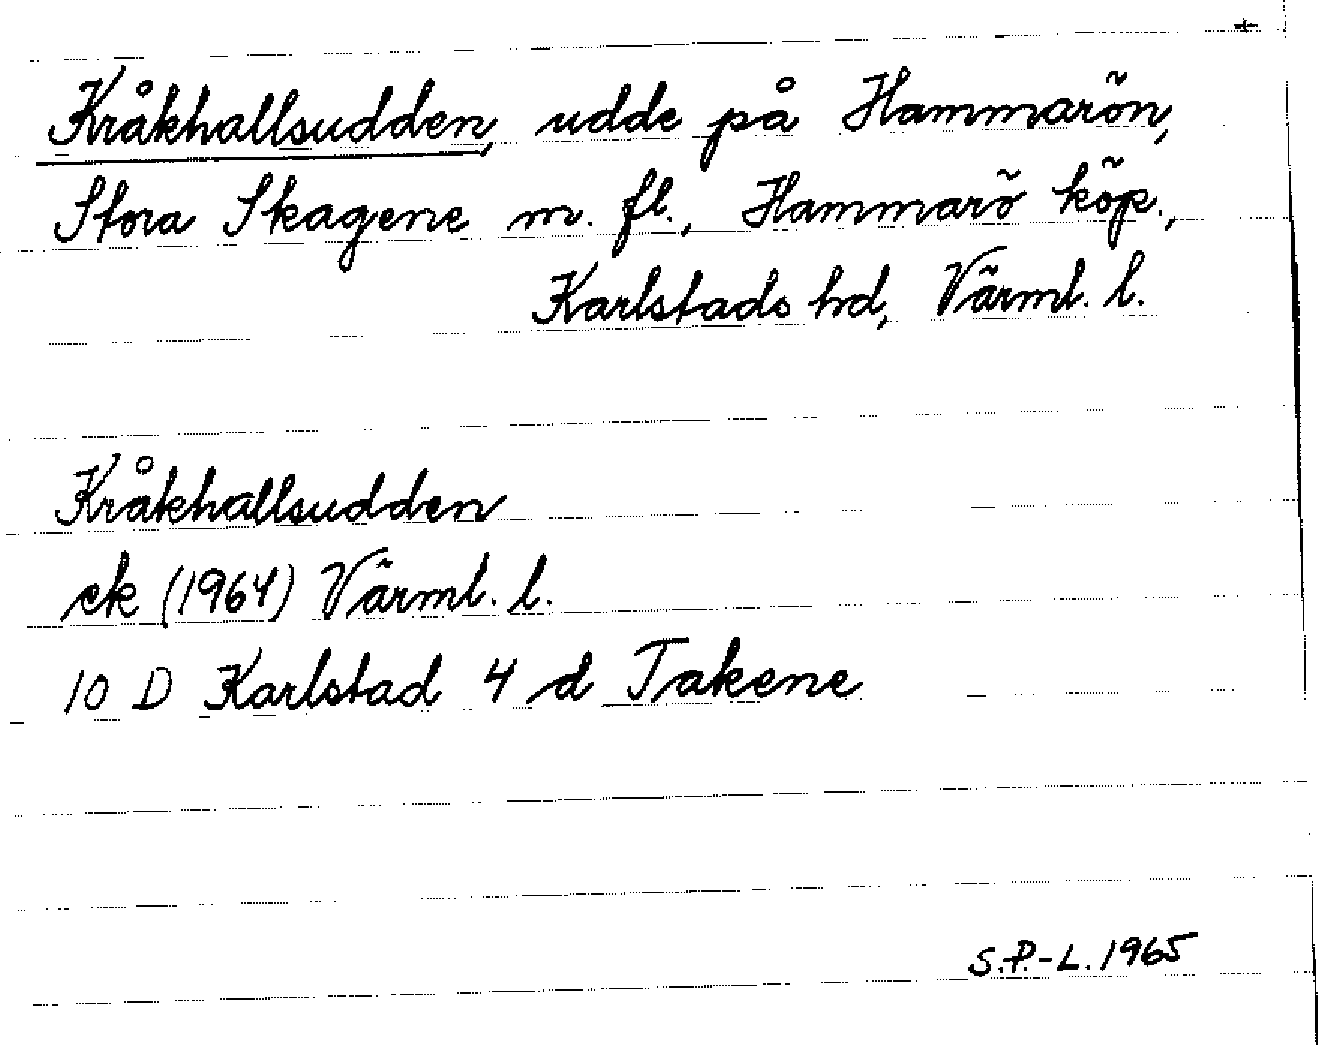 Kråkhallsudden, udde på Hammarön,
Stora Skagene m. fl., Hammarö köp.,
Karlstads hd, Värml. l.
Kråkhallsudden
ek (1964) Värml. l.
10 D Karlstad 4 d Takene
S.P.-L. 1965